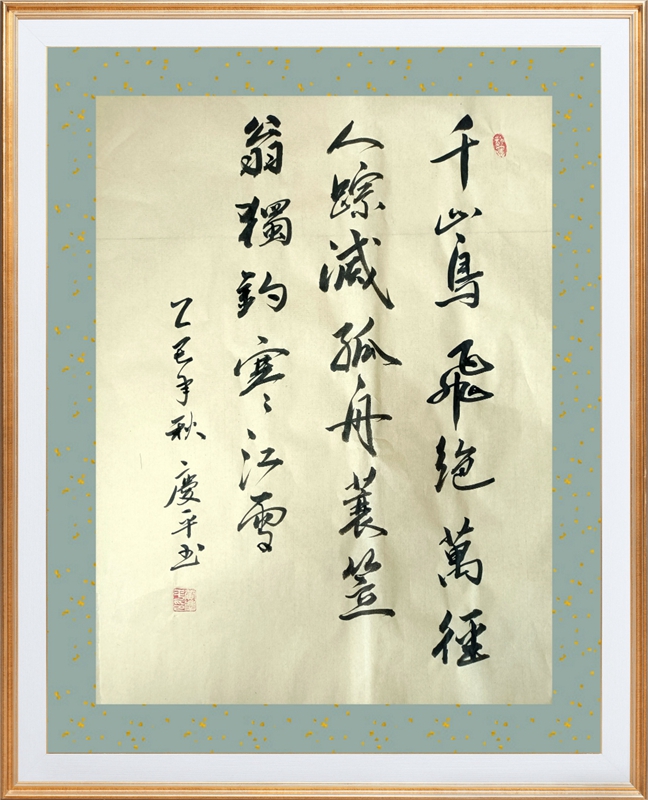 千山鳥飛絶萬徑
人踪滅孤舟蓑笠
翁獨釣寒江雪
乙巳年秋慶平书